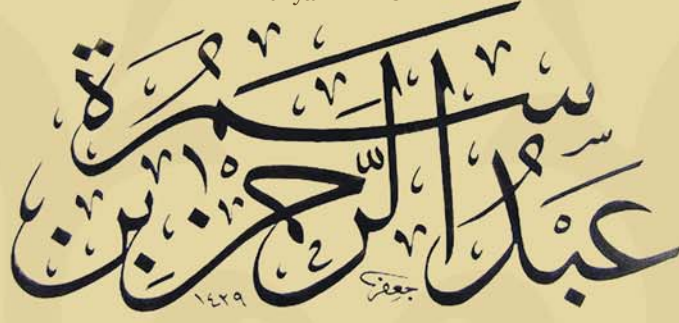 عَبْدُ الرَّحْمٰنِ بْنِ سَمُرَة
جعفر ١٤٢٩